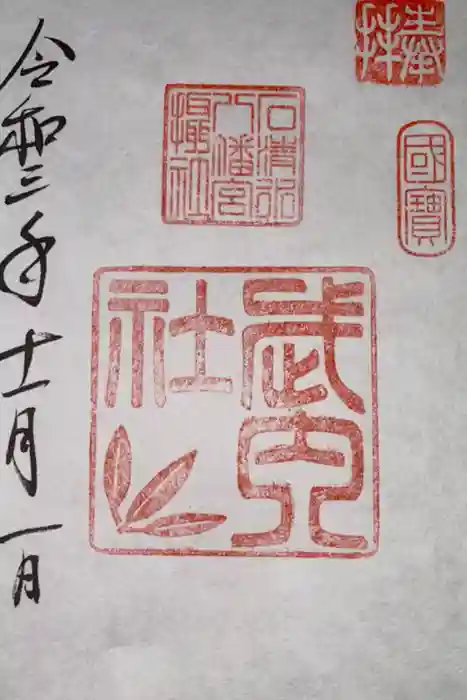 奉拝
國寶
石清水
八幡宮
攝社
武内
社
令和三年十一月一日